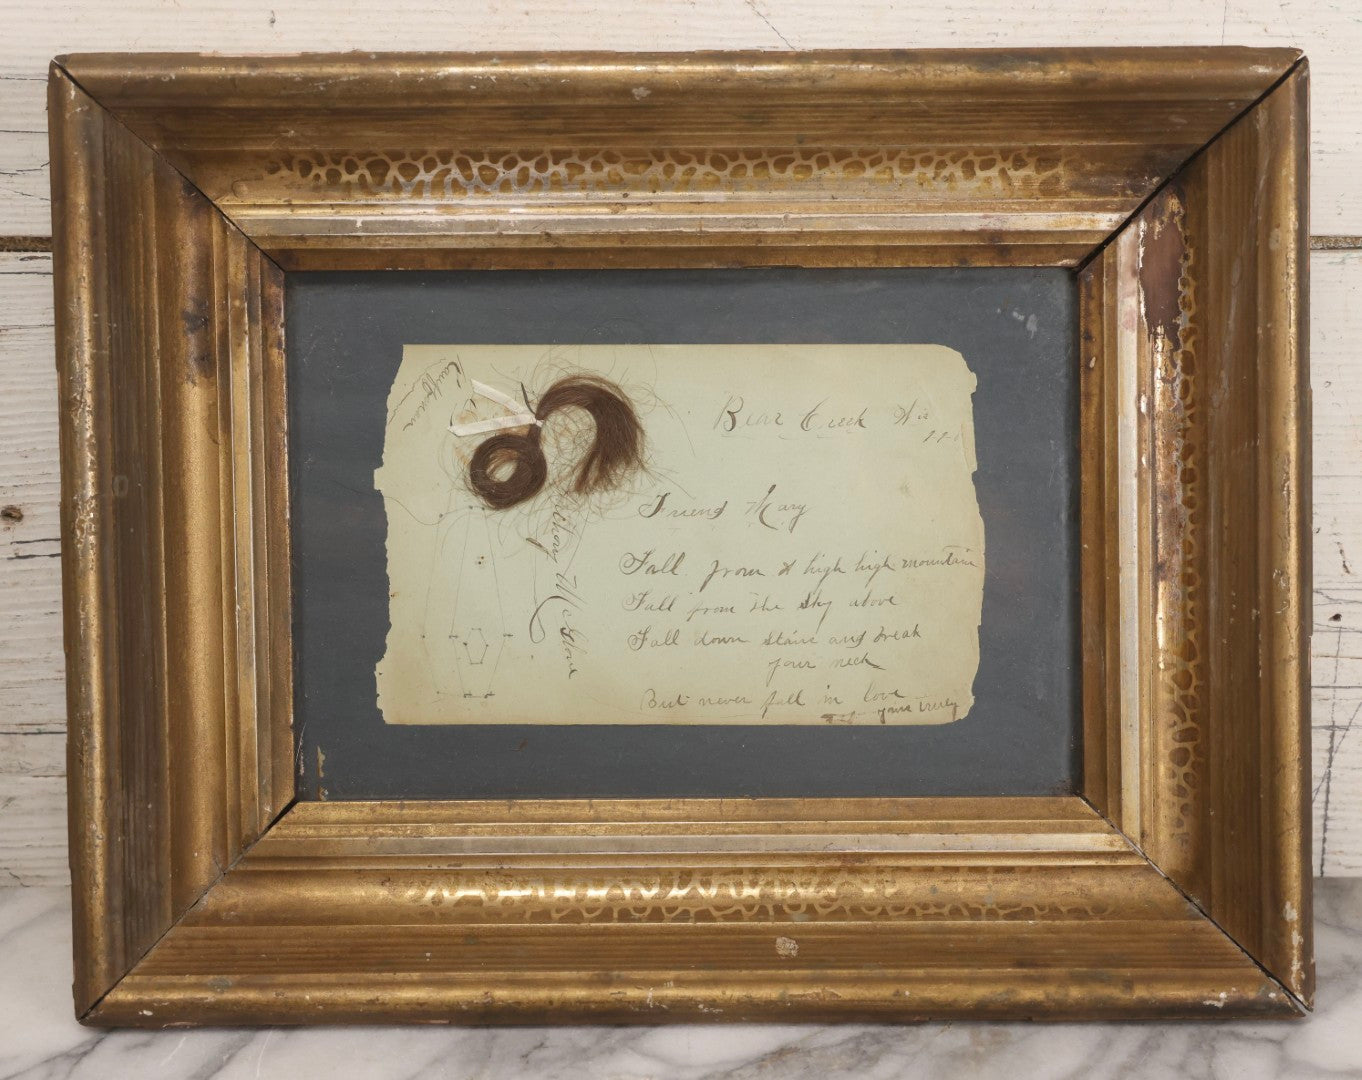 Kauffman
Bear Creek Wis
Friend Mary
Fall from a high high mountain
Fall from the sky above
Fall down stairs and break
your neck
But never fall in love
yours truly
thony McGlone